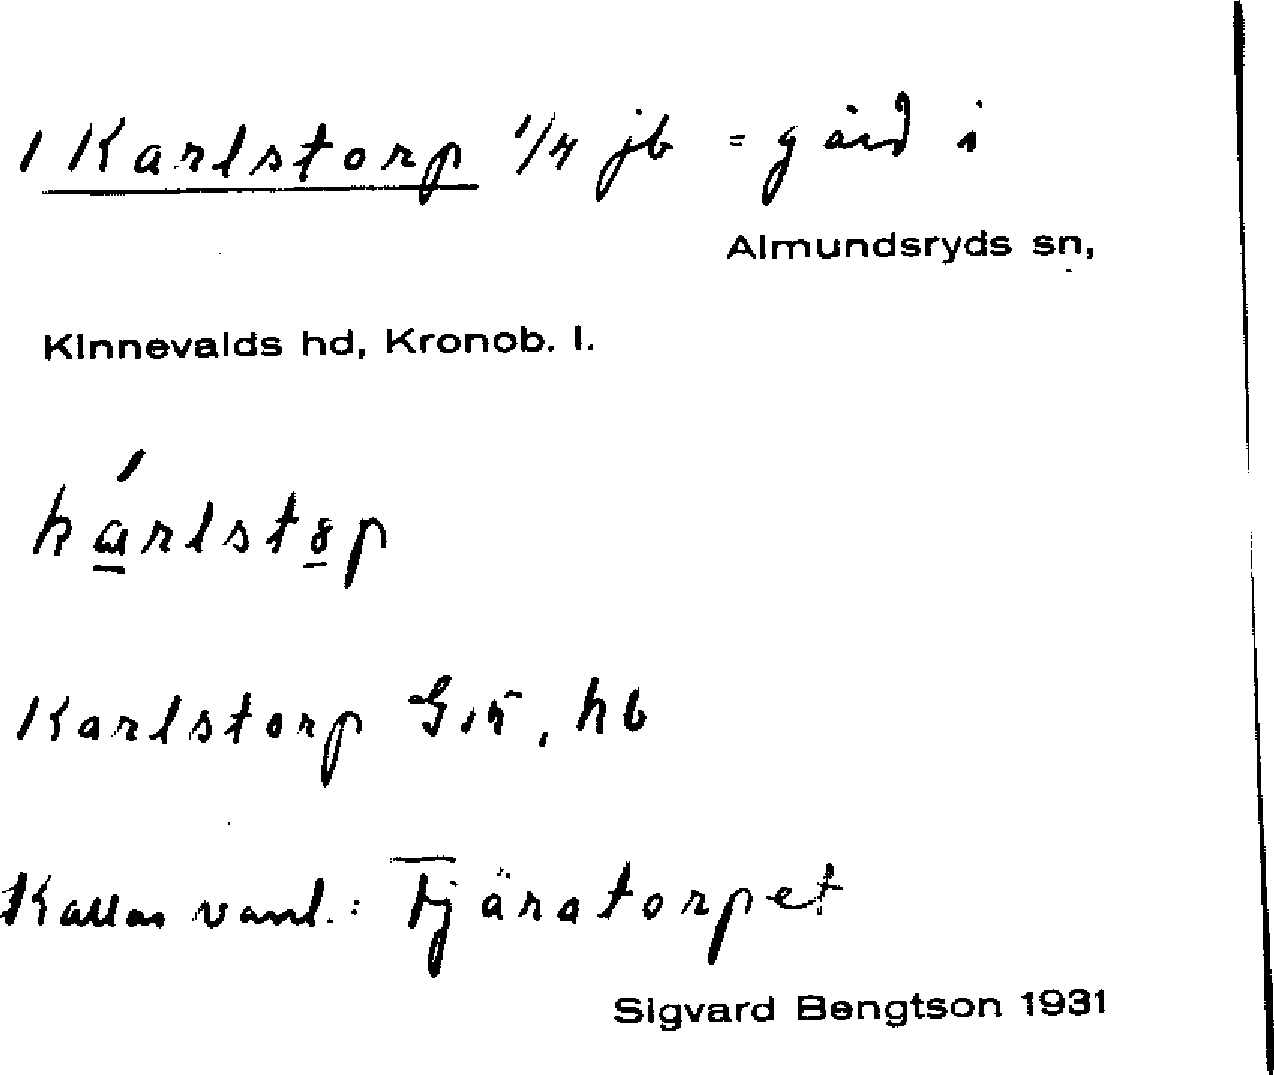 1 Karlstorp 1/4 jb = gård i
Almundsryds sn,
Kinnevalds hd, Kronob. l.
kárlstøp
Karlstorp G.K, hb
Kallas vanl.: Tjäratorpet
Sigvard Bengtson 1931